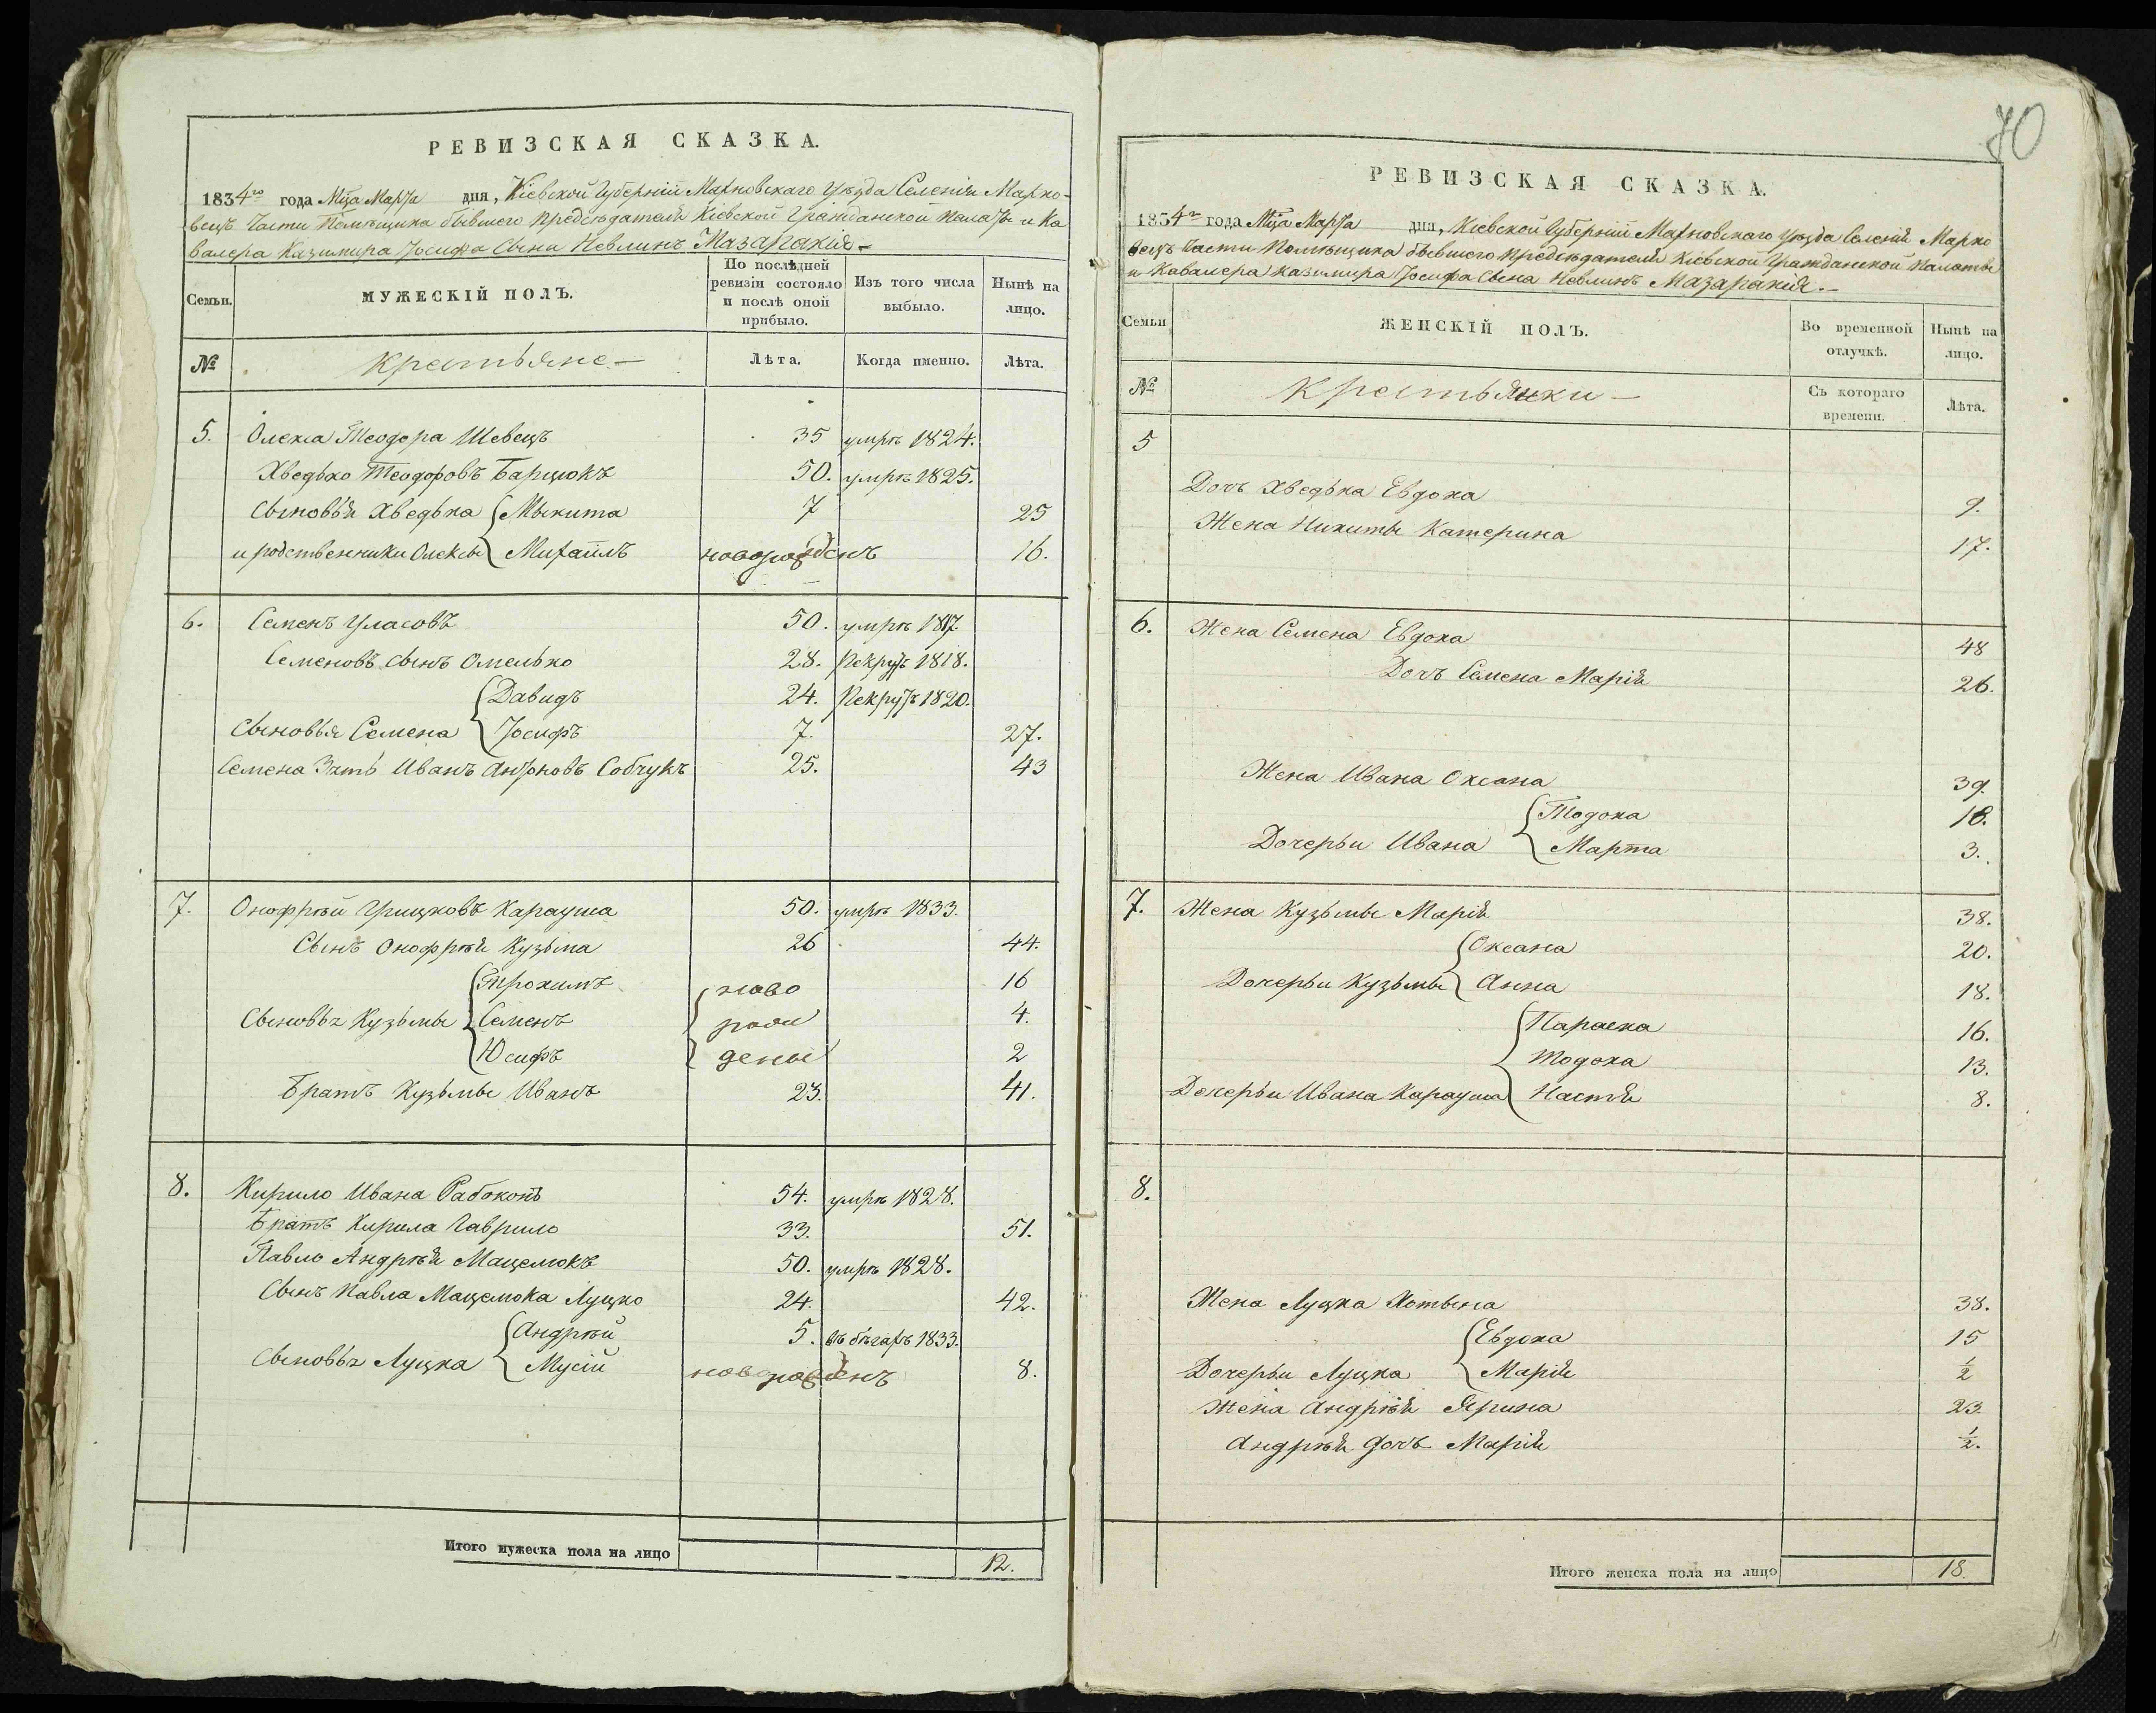 РЕВИЗСКАЯ СКАЗКА.
1834го года Мца Марта дня, Кіевской Губерніи Махновскаго Уѣзда Селенія Марко-
вецъ Части Помѣщика бывшего Предсѣдателя Кіевской Гражданской Палаты и Ка
валера Казимира Іосифа Сына Невлинъ Мазаракія
Семьи.
МУЖЕСКІЙ ПОЛЪ.
По послѣдней ревизіи состояло и послѣ оной прибыло.
Изъ того числа выбыло.
Нынѣ на лицо.
№
Крестьяне
Лѣта.
Когда именно.
Лѣта.
5. Олекса Теодора Шевецъ 35 умрѣ 1824.
Хведько Теодоровъ Барцюкъ 50. умрѣ 1825.
Сыновья Хведька Мыкита 7 25
и родственники Олексы Михаилъ новорожденъ 16.
6. Семенъ Уласовъ 50. умрѣ 1817.
Семеновъ сынъ Омелько 28. Рекрутъ 1818.
Давидъ 24. Рекрутъ 1820.
Сыновья Семена Іосифъ 7. 27.
Семена Зять Иванъ Антоновъ Собчукъ 25. 43
7. Онофрѣй Грицковъ Карауша 50. умрѣ 1833.
Сынъ Онофрѣя Кузьма 26 44.
Трохимъ ново 16
Сыновья Кузьмы Семенъ рож 4.
Юсифъ дены 2
Братъ Кузьмы Иванъ 23. 41.
8. Кирило Ивана Рабоконь 54. умрѣ 1828.
Братъ Кирила Гаврило 33. 51.
Павло Андрѣя Мацемокъ 50. умрѣ 1828.
Сынъ Павла Мацемока Луцко 24. 42.
Андрѣй 5. въ бѣгахъ 1833.
Сыновья Луцка Мусій новорожденъ 8.
Итого мужеска пола на лицо 12.
70
РЕВИЗСКАЯ СКАЗКА.
1834го года Мца Марта дня, Кіевской Губерніи Махновскаго Уѣзда Селенія Марко
вецъ Части Помѣщика бывшего Предсѣдателя Кіевской Гражданской Палаты
и Кавалера Казимира Іосифа Сына Невлинъ Мазаракія.
Семьи
ЖЕНСКІЙ ПОЛЪ.
Во временной отлучкѣ.
Нынѣ на лицо.
№
Крестьянки
Съ котораго времени.
Лѣта.
5
Дочь Хведька Евдоха 9.
Жена Никиты Катерина 17.
6. Жена Семена Евдоха 48
Дочь Семена Марія 26.
Жена Ивана Оксана 39.
Тодоха 18.
Дочерьи Ивана Марта 3.
7. Жена Кузьмы Марія 38.
Оксана 20.
Дочерьи Кузьмы Анна 18.
Параска 16.
Тодоха 13.
Дочерьи Ивана Карауша Настя 8.
8.
Жена Луцка Хотына 38.
Евдоха 15
Дочерьи Луцка Марія ½
Жена Андрѣя Ярина 23
Андрѣя дочъ Марія ½.
Итого женска пола на лицо 18.